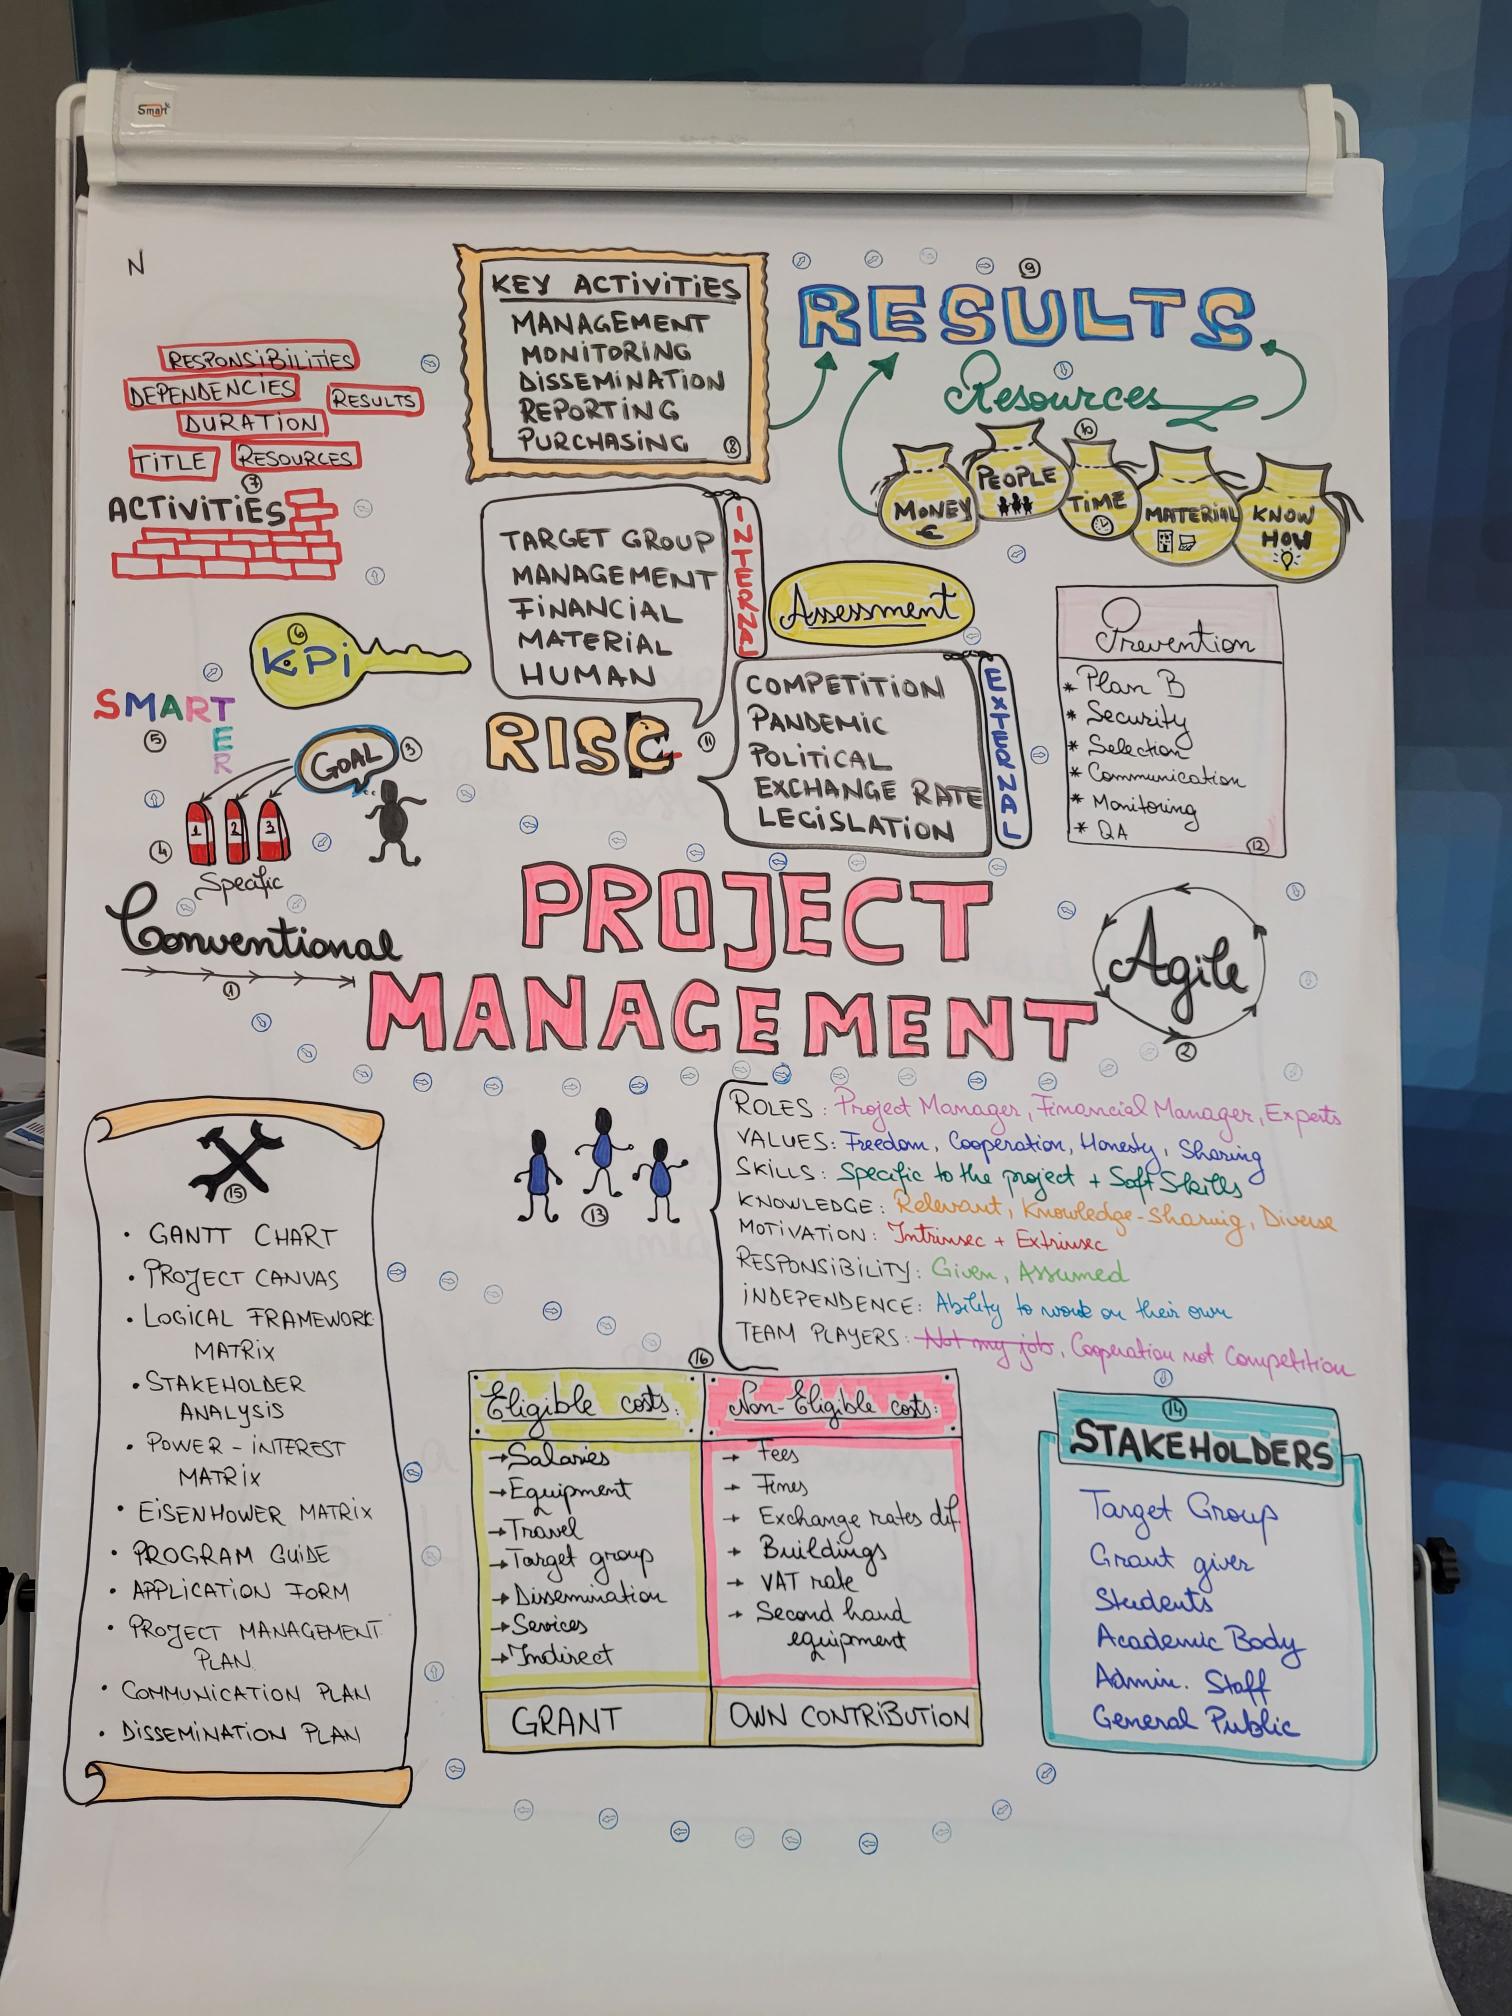 Smart
N
KEY ACTIVITIES
MANAGEMENT
MONITORING
DISSEMINATION
REPORTING
PURCHASING
8
9
RESULTS
Resources
10
MONEY
€
PEOPLE
TIME
MATERIAL
KNOW
HOW
RESPONSIBILITIES
DEPENDENCIES
RESULTS
DURATION
TITLE
RESOURCES
7
ACTIVITIES
INTERNAL
TARGET GROUP
MANAGEMENT
FINANCIAL
MATERIAL
HUMAN
Assessment
EXTERNAL
COMPETITION
PANDEMIC
POLITICAL
EXCHANGE RATE
LEGISLATION
11
RISC
Prevention
* Plan B
* Security
* Selection
* Communication
* Monitoring
* QA
12
6
KPi
SMARTER
5
GOAL
3
1
2
3
4
Specific
Conventional
1
PROJECT
MANAGEMENT
Agile
2
13
ROLES: Project Manager, Financial Manager, Experts
VALUES: Freedom, Cooperation, Honesty, Sharing
SKILLS: Specific to the project + Soft Skills
KNOWLEDGE: Relevant, Knowledge-Sharing, Diverse
MOTIVATION: Intrinsec + Extrinsec
RESPONSIBILITY: Given, Assumed
INDEPENDENCE: Ability to work on their own
TEAM PLAYERS: Not my job, Cooperation not Competition
15
• GANTT CHART
• PROJECT CANVAS
• LOGICAL FRAMEWORK
MATRIX
• STAKEHOLDER
ANALYSIS
• POWER - INTEREST
MATRIX
• EISENHOWER MATRIX
• PROGRAM GUIDE
• APPLICATION FORM
• PROJECT MANAGEMENT
PLAN
• COMMUNICATION PLAN
• DISSEMINATION PLAN
16
Eligible costs:
→ Salaries
→ Equipment
→ Travel
→ Target group
→ Dissemination
→ Sevices
→ Indirect
GRANT
Non-Eligible costs:
→ Fees
→ Fines
→ Exchange rates dif.
→ Buildings
→ VAT rate
→ Second hand
equipment
OWN CONTRIBUTION
14
STAKEHOLDERS
Target Group
Grant giver
Students
Academic Body
Admin. Staff
General Public